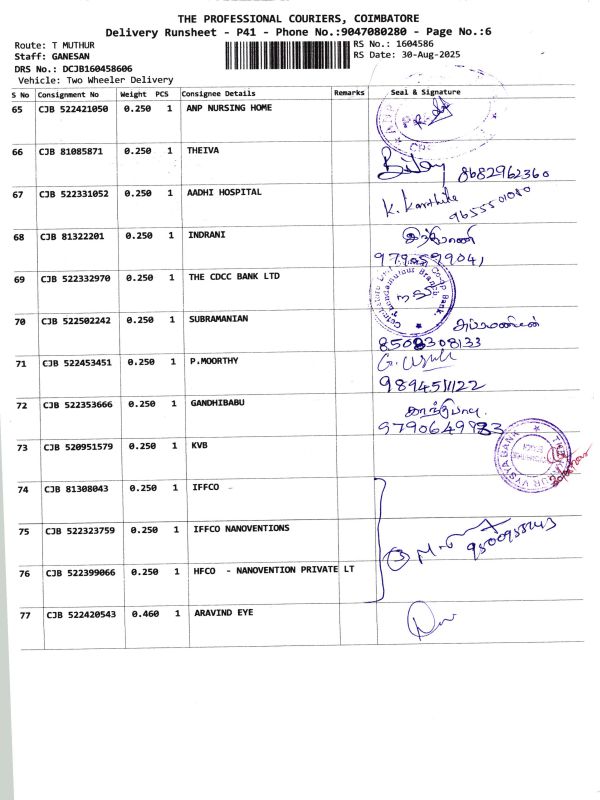 THE PROFESSIONAL COURIERS, COIMBATORE
Delivery Runsheet - P41 - Phone No.:9047080280 - Page No.:6
Route: T MUTHUR
RS No.: 1604586
Staff: GANESAN
RS Date: 30-Aug-2025
DRS No.: DCJB160458606
Vehicle: Two Wheeler Delivery
S No Consignment No Weight PCS Consignee Details Remarks Seal & Signature
65 CJB 522421050 0.250 1 ANP NURSING HOME
66 CJB 81085871 0.250 1 THEIVA
8682962360
67 CJB 522331052 0.250 1 AADHI HOSPITAL K. Karthika
9655501080
68 CJB 81322201 0.250 1 INDRANI இந்திராணி
69 CJB 522332970 0.250 1 THE CDCC BANK LTD
70 CJB 522502242 0.250 1 SUBRAMANIAN
8508308133
71 CJB 522453451 0.250 1 P.MOORTHY
9894511122
72 CJB 522353666 0.250 1 GANDHIBABU
73 CJB 520951579 0.250 1 KVB
THE KARUR VYSYA BANK
74 CJB 81308043 0.250 1 IFFCO
75 CJB 522323759 0.250 1 IFFCO NANOVENTIONS
76 CJB 522399066 0.250 1 HFCO - NANOVENTION PRIVATE LT
77 CJB 522420543 0.460 1 ARAVIND EYE